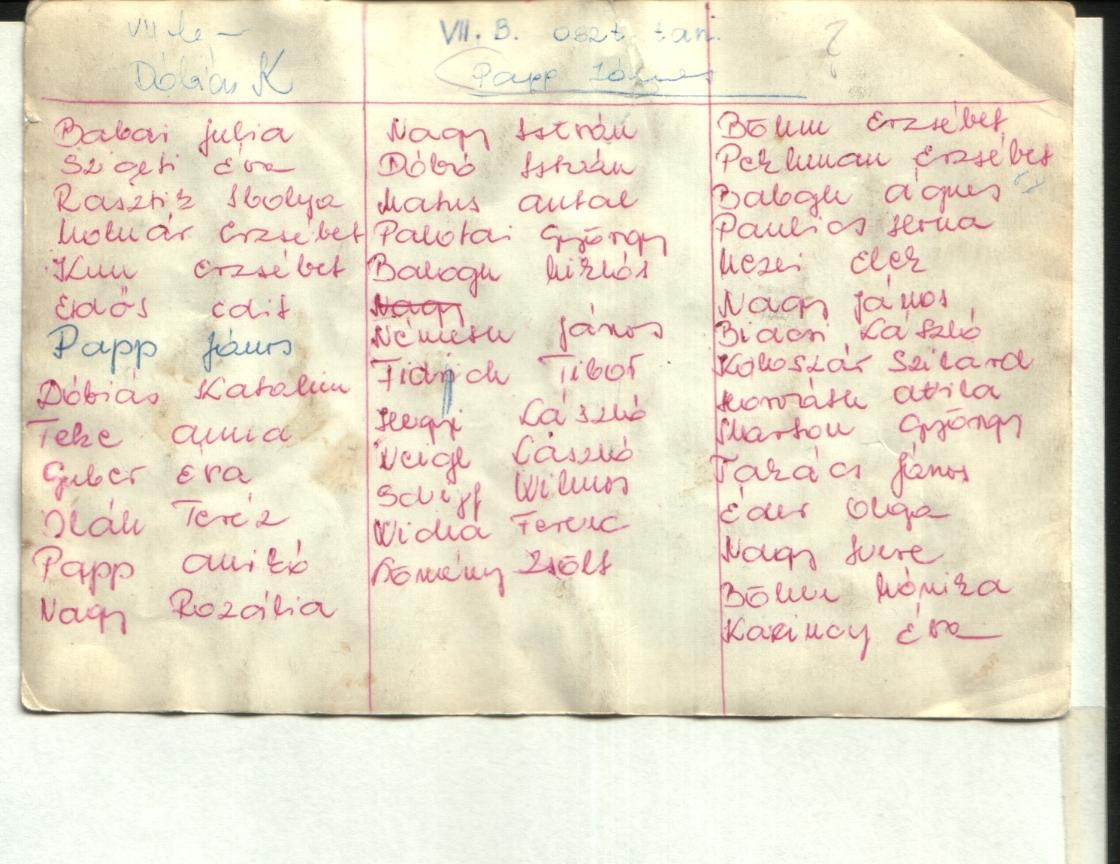 VII. B. oszt. tan.
Dóbiás K
Papp János
Babai Julia
Szigeti Éva
Rasztik Ibolya
Molnár Erzsébet
Kun Erzsébet
Erdős Edit
Papp János
Dóbiás Katalin
Teke Anna
Guber Éva
Oláh Teréz
Papp Anikó
Nagy Rozália
Nagy István
Dóbó István
Matus Antal
Palotai György
Balogh Miklós
Nagy
Németh János
Fidrich Tibor
Hegyi László
Weigl László
Schipf Wilmos
Widha Ferenc
Kömény Zsolt
Bőhm Erzsébet
Perlman Erzsébet
Balogh Ágnes
Paulics Ilona
Mezei Elek
Nagy János
Biacsi László
Koloszár Szilárd
Horváth Attila
Marton György
Takács János
Éder Olga
Nagy Imre
Bőhm Mónika
Kazinczy Éva